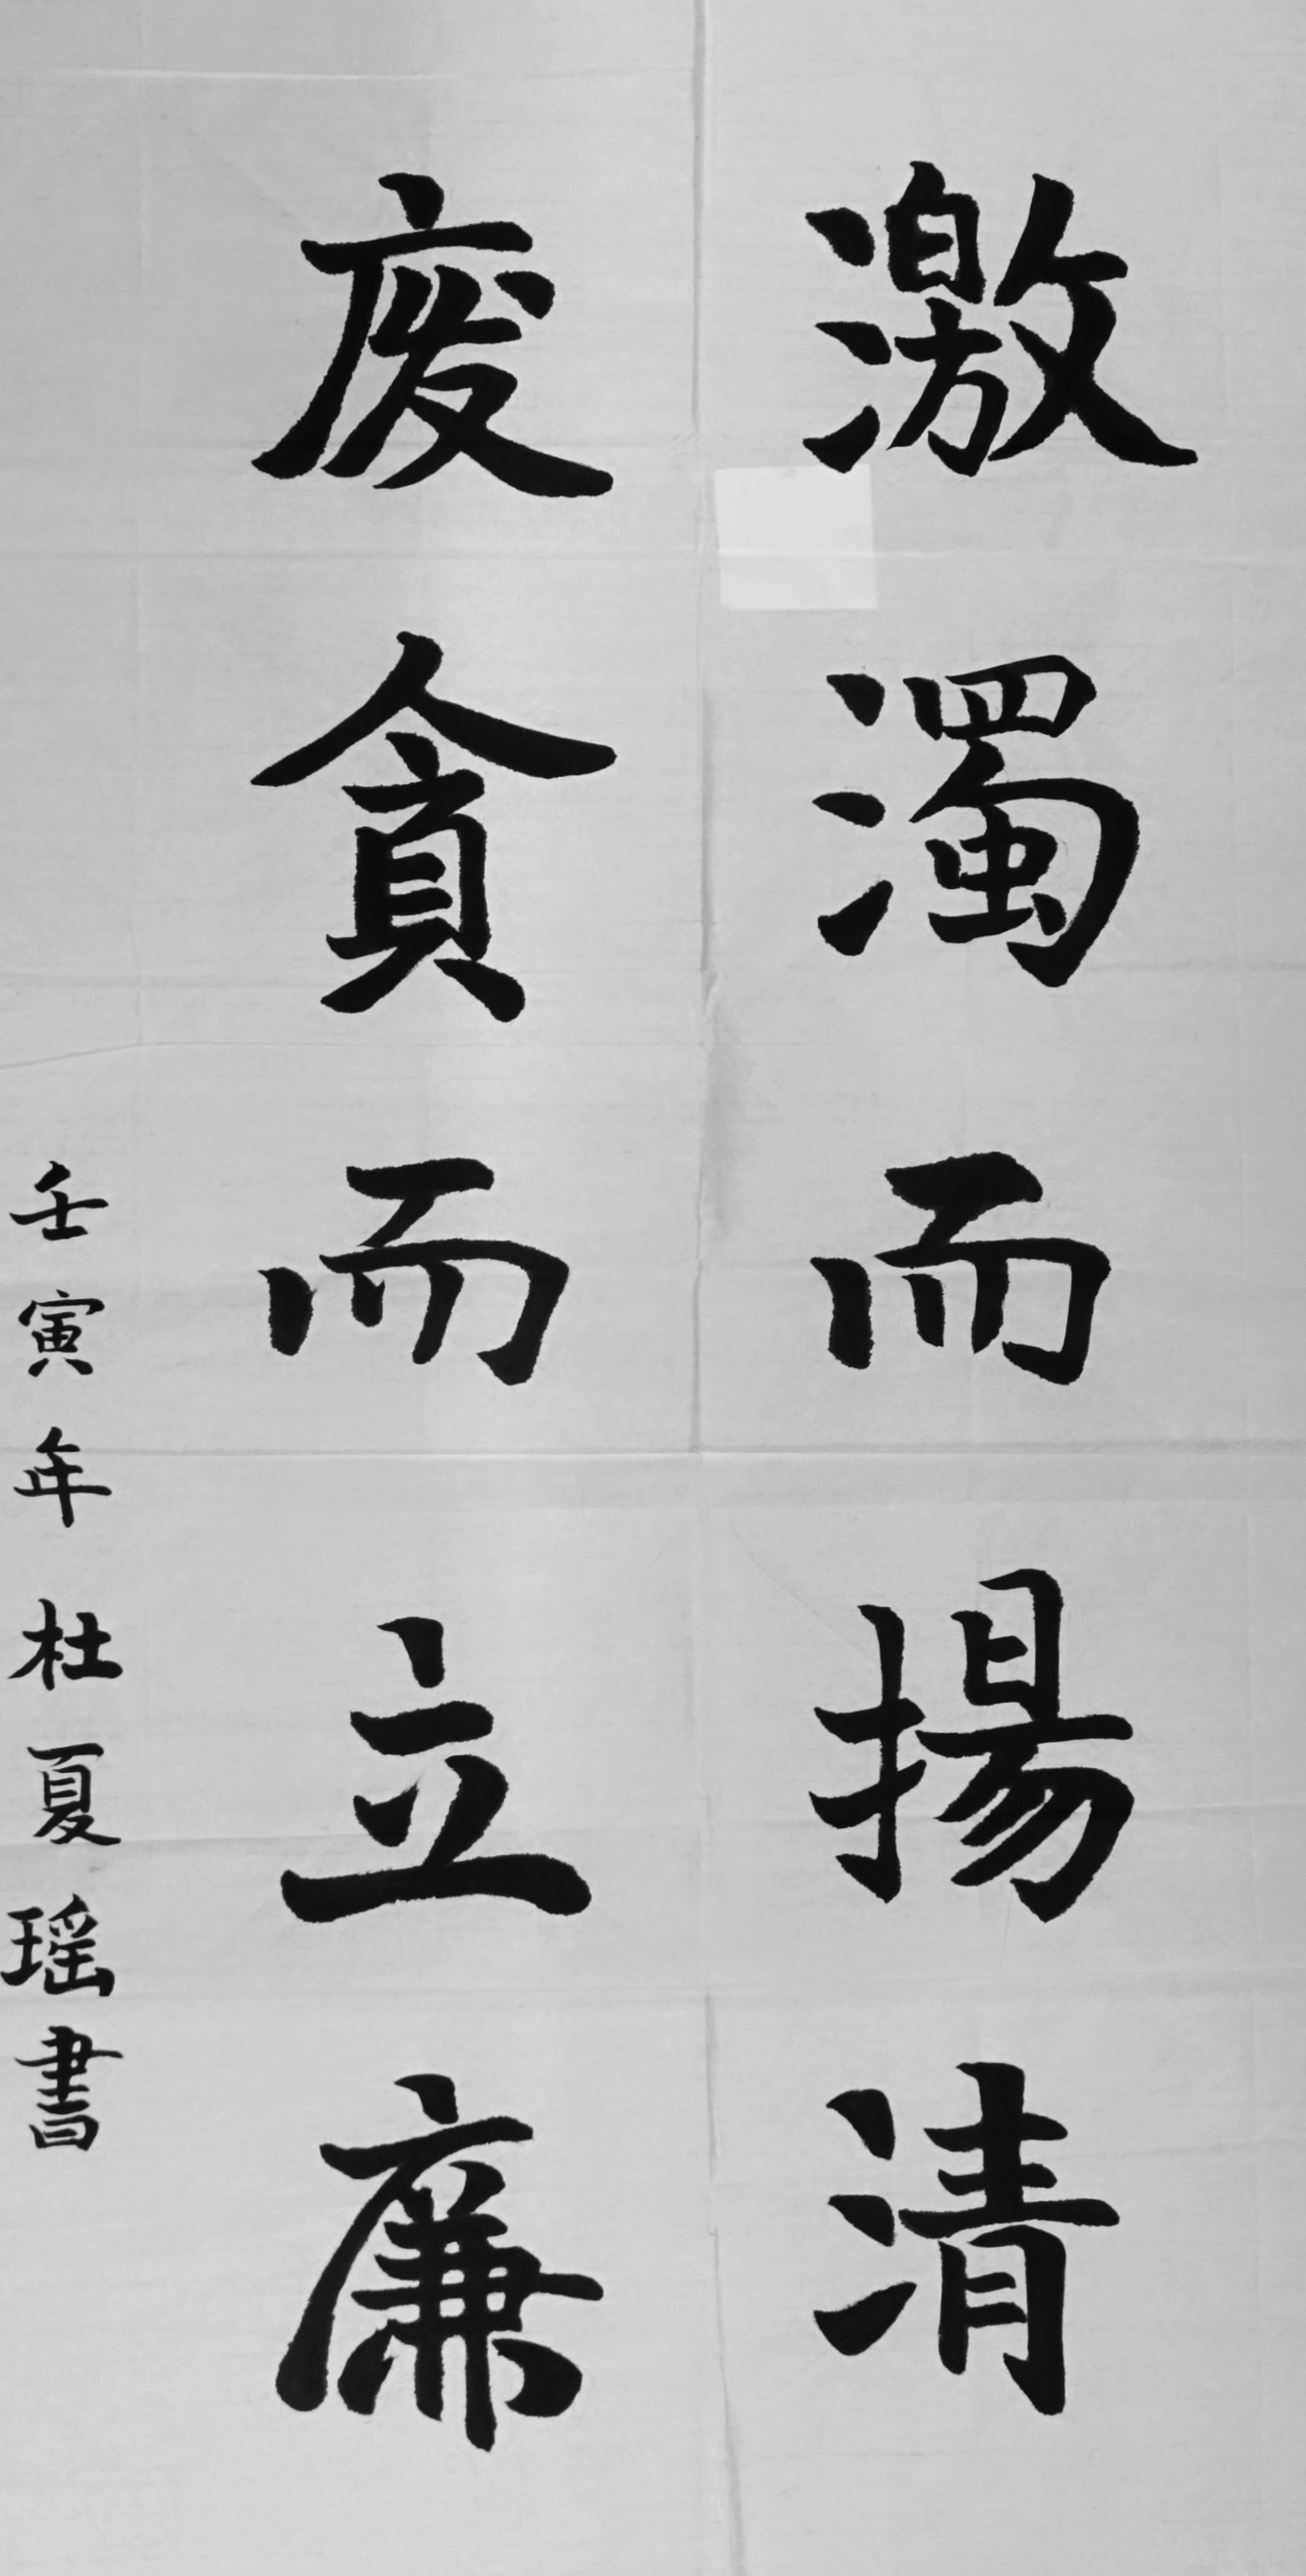 激濁而揚清
废貪而立廉
壬寅年杜夏瑶書